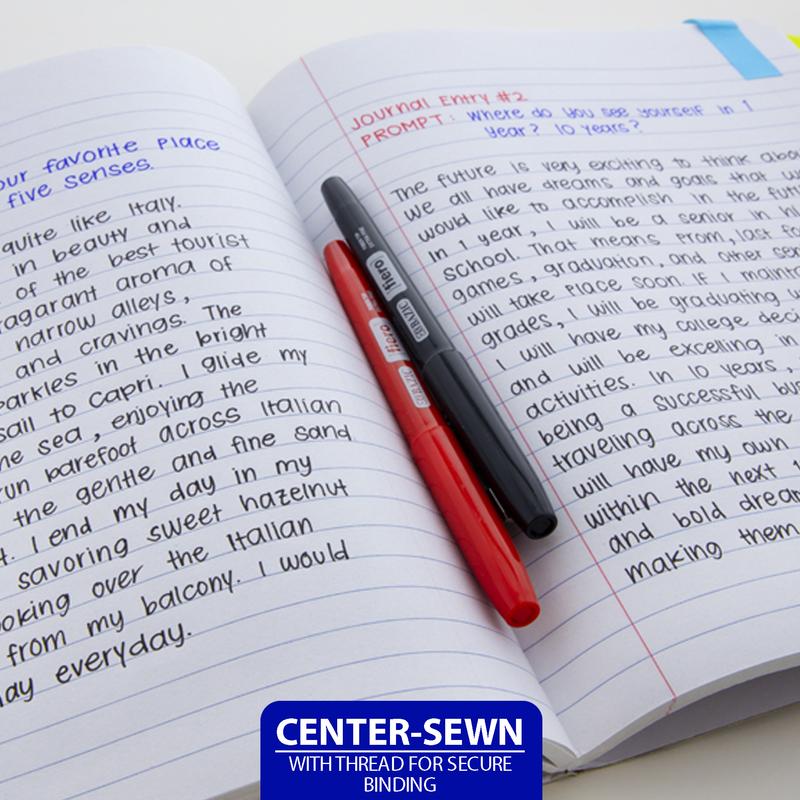 our favorite Place
five senses.
quite like Italy.
in beauty and
of the best tourist
ragarant aroma of
narrow alleys,
and cravings. The
parkles in the bright
sail to Capri. I glide my
he sea, enjoying the
run barefoot across Italian
the gentle and fine sand
t. I end my day in my
savoring sweet hazelnut
ooking over the Italian
from my balcony. I would
day everyday.
Journal Entry #2
PROMPT: Where do you see yourself in 1
year? 10 years?
The future is very exciting to think abou
we all have dreams and goals that we
would like to accomplish in the futu
In 1 year, I will be a senior in hi
school. That means Prom, last fo
games, graduation, and other sen
will take place soon. If I mainta
grades, I will be graduating w
I will have my college deci
and will be excelling in
activities. In 10 years,
being a successful bus
traveling across the
will have my own
within the next 1
and bold dream
making them
fiero
BAZIC
fiero
BAZIC
CENTER-SEWN
WITH THREAD FOR SECURE
BINDING